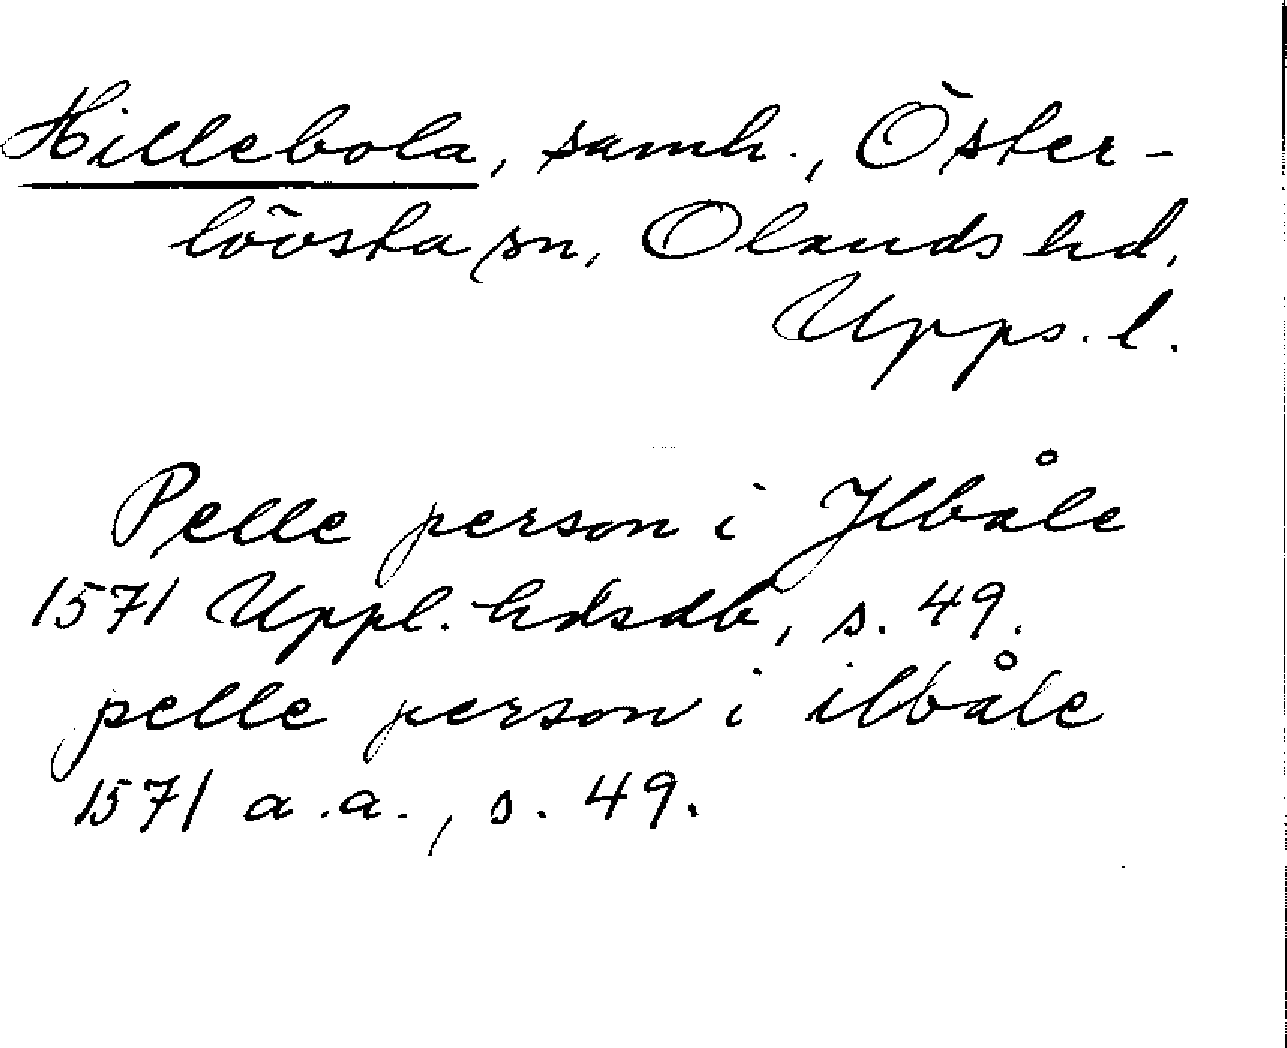 Hillebola, samh., Öster-
lövsta sn, Olands hd,
Upps. l.
Pelle person i Jlbåle
1571 Uppl. hdsdb, s. 49.
pelle person i ilbåle
1571 a.a., s. 49.